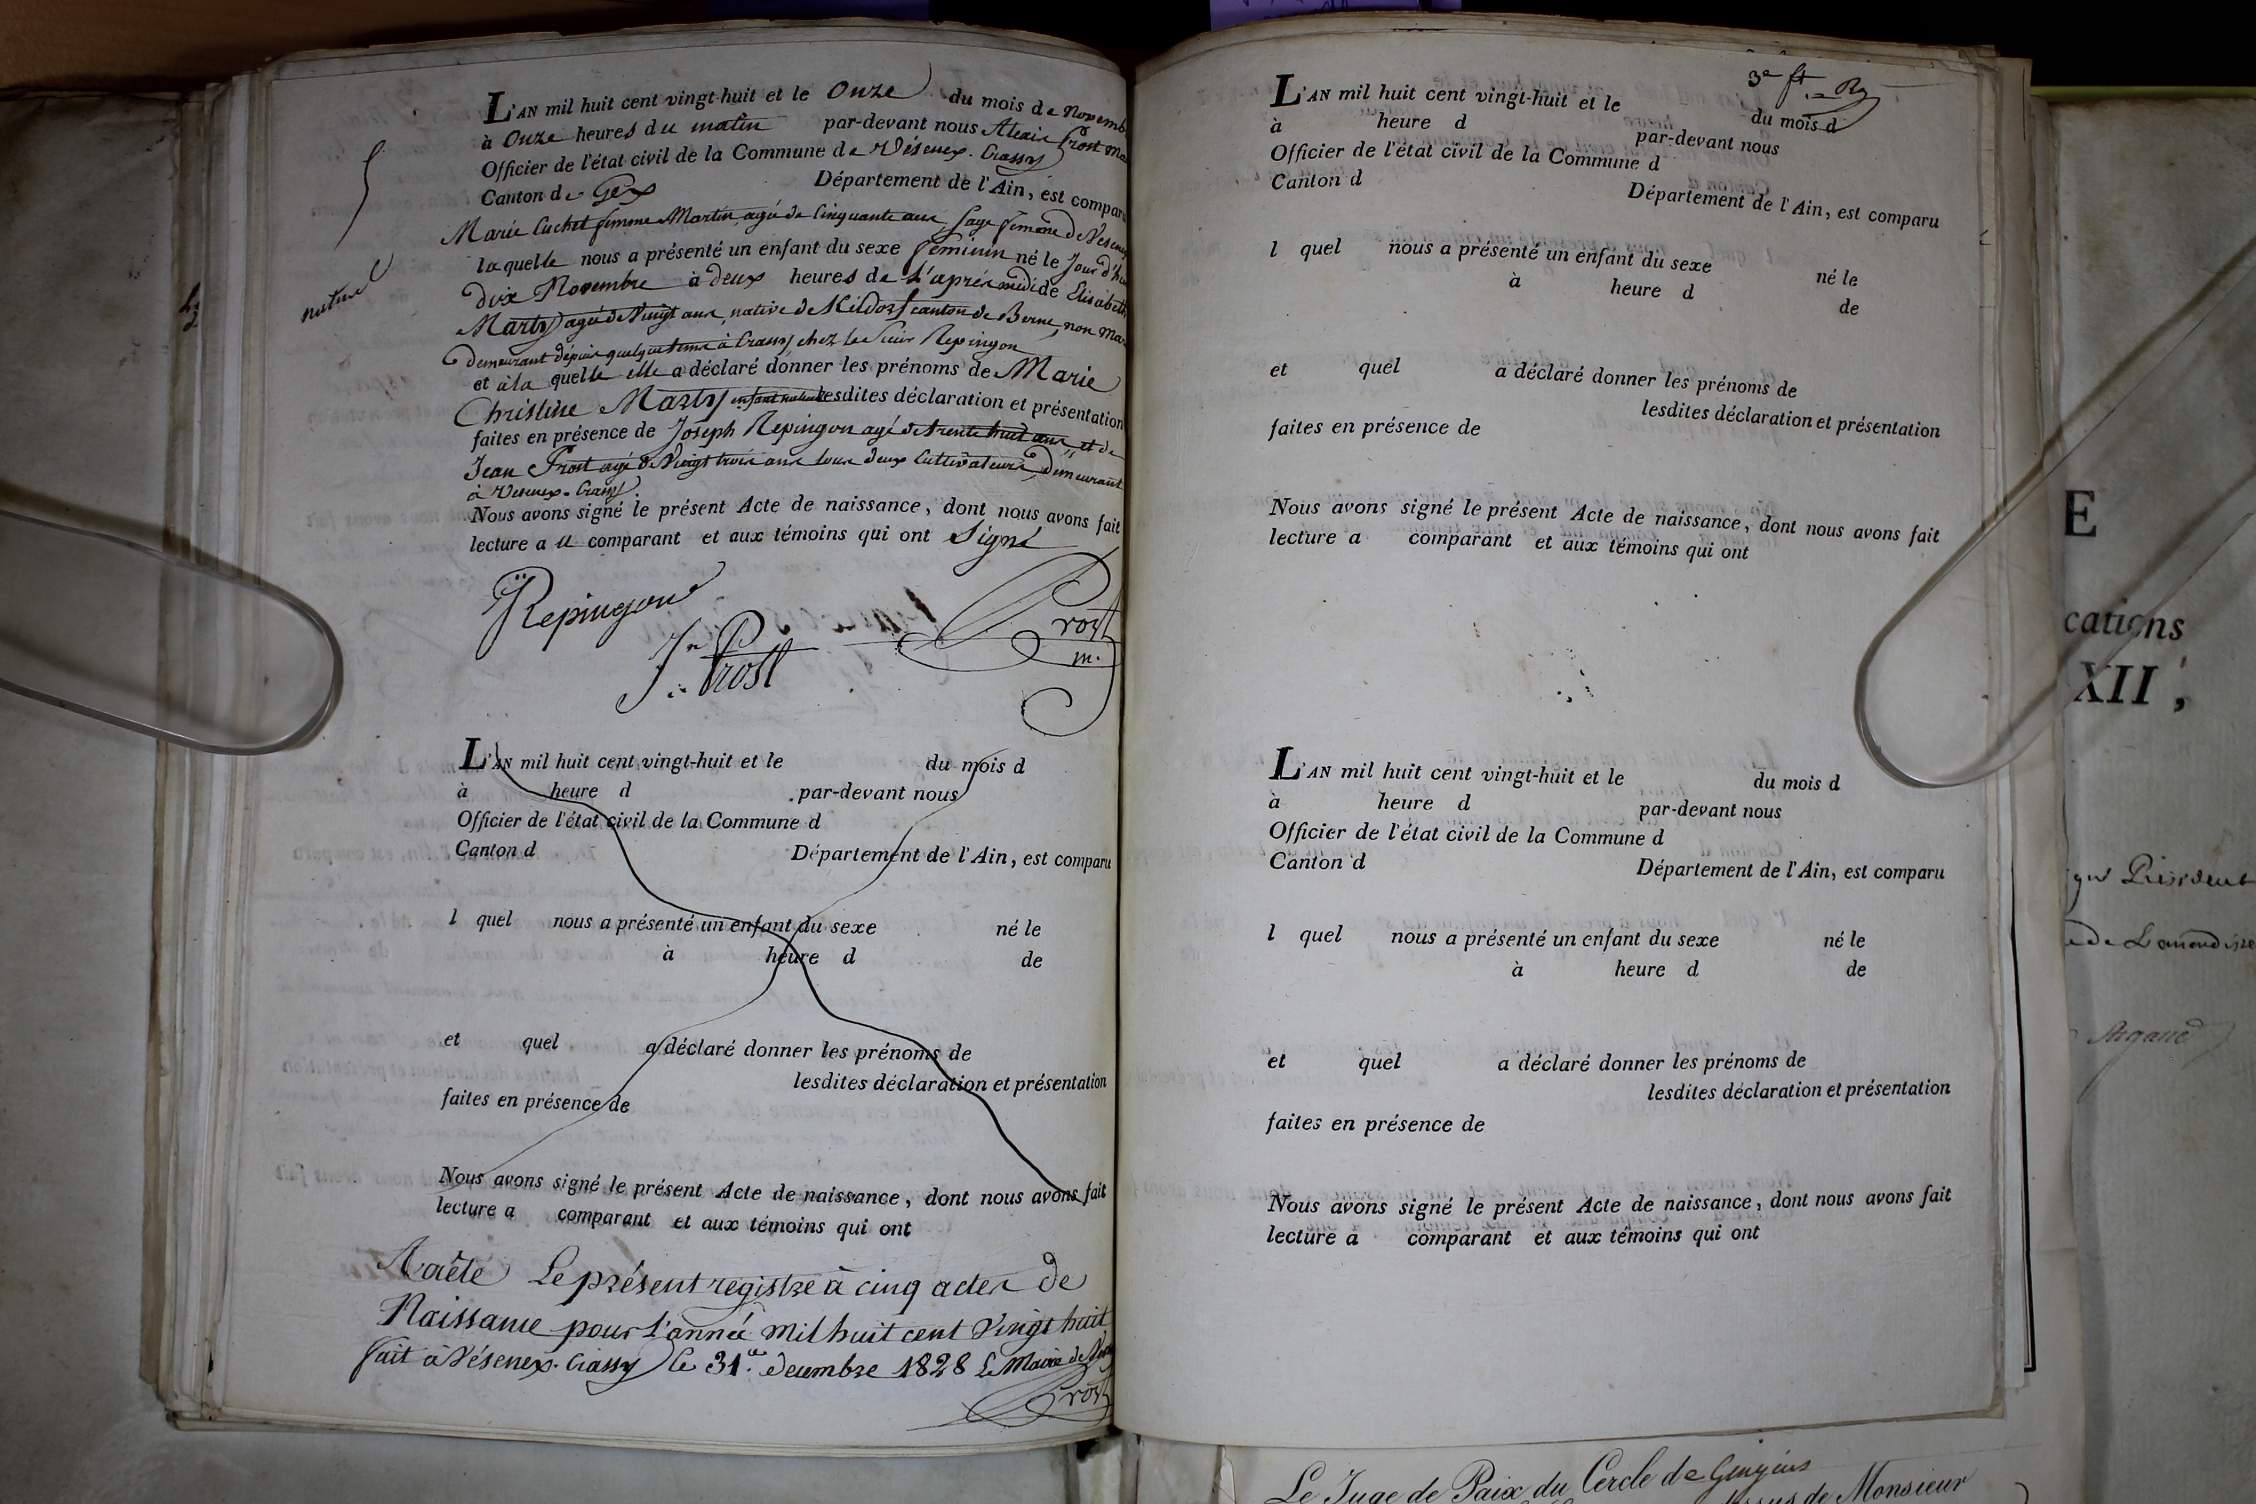 L'AN mil huit cent vingt-huit et le Onze du mois de Novemb
à Onze heures du matin par-devant nous Alexis Prost Ma
Officier de l'état civil de la Commune de Vésenex. Crassy
Canton de Gex Département de l'Ain, est comparu
Marie Cuchet femme Martin, agée de Cinquante ans, Sage femme de Vesenex
laquelle nous a présenté un enfant du sexe féminin né le Jour d'hier
dix Novembre à deux heures de L'après midi de Elisabeth
Marty agée de Vingt ans, native de Kildorf canton de Berne, non Ma
demeurant dépuis quelque tems à Crassy chez Le Sieur Repingon
et à la quelle elle a déclaré donner les prénoms de Marie
Christine Marty enfant naturel lesdites déclaration et présentation
faites en présence de Joseph Repingon agé de trente huit ans, et de
Jean Prost agé de Vingt trois ans tous deux Cultivateurs, demeurant
à Vesenex-Crassy.
Nous avons signé le présent Acte de naissance, dont nous avons fait
lecture a u comparant et aux témoins qui ont Signé
5
naturel
JRepingon
Jn Prost
Prost
m.
L'AN mil huit cent vingt-huit et le du mois d
à heure d par-devant nous
Officier de l'état civil de la Commune d
Canton d Département de l'Ain, est comparu
l quel nous a présenté un enfant du sexe né le
à heure d de
et quel a déclaré donner les prénoms de
lesdites déclaration et présentation
faites en présence de
Nous avons signé le présent Acte de naissance, dont nous avons fait
lecture a comparant et aux témoins qui ont
Arrête Le présent registre à cinq actes de
Naissance pour L'année Mil huit cent Vingt huit
fait à Vésenex. Crassy le 31e. Decembre 1828 Le Maire de Vés
Prost
3e ft.
L'AN mil huit cent vingt-huit et le du mois d
à heure d par-devant nous
Officier de l'état civil de la Commune d
Canton d Département de l'Ain, est comparu
l quel nous a présenté un enfant du sexe né le
à heure d de
et quel a déclaré donner les prénoms de
lesdites déclaration et présentation
faites en présence de
Nous avons signé le présent Acte de naissance, dont nous avons fait
lecture a comparant et aux témoins qui ont
L'AN mil huit cent vingt-huit et le du mois d
à heure d par-devant nous
Officier de l'état civil de la Commune d
Canton d Département de l'Ain, est comparu
l quel nous a présenté un enfant du sexe né le
à heure d de
et quel a déclaré donner les prénoms de
lesdites déclaration et présentation
faites en présence de
Nous avons signé le présent Acte de naissance, dont nous avons fait
lecture a comparant et aux témoins qui ont
E
cations
XII,
Président
Le Juge de Paix du Cercle de Gingins
de Monsieur